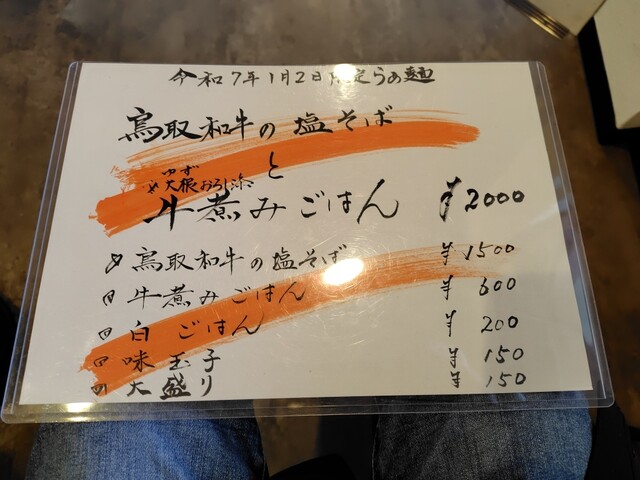 令和7年1月2日限定らぁ麺
鳥取和牛の塩そば
と
ゆず
大根おろし添え
牛煮みごはん ¥2000
鳥取和牛の塩そば ¥1500
牛煮みごはん ¥600
白ごはん ¥200
味玉子 ¥150
大盛り ¥150